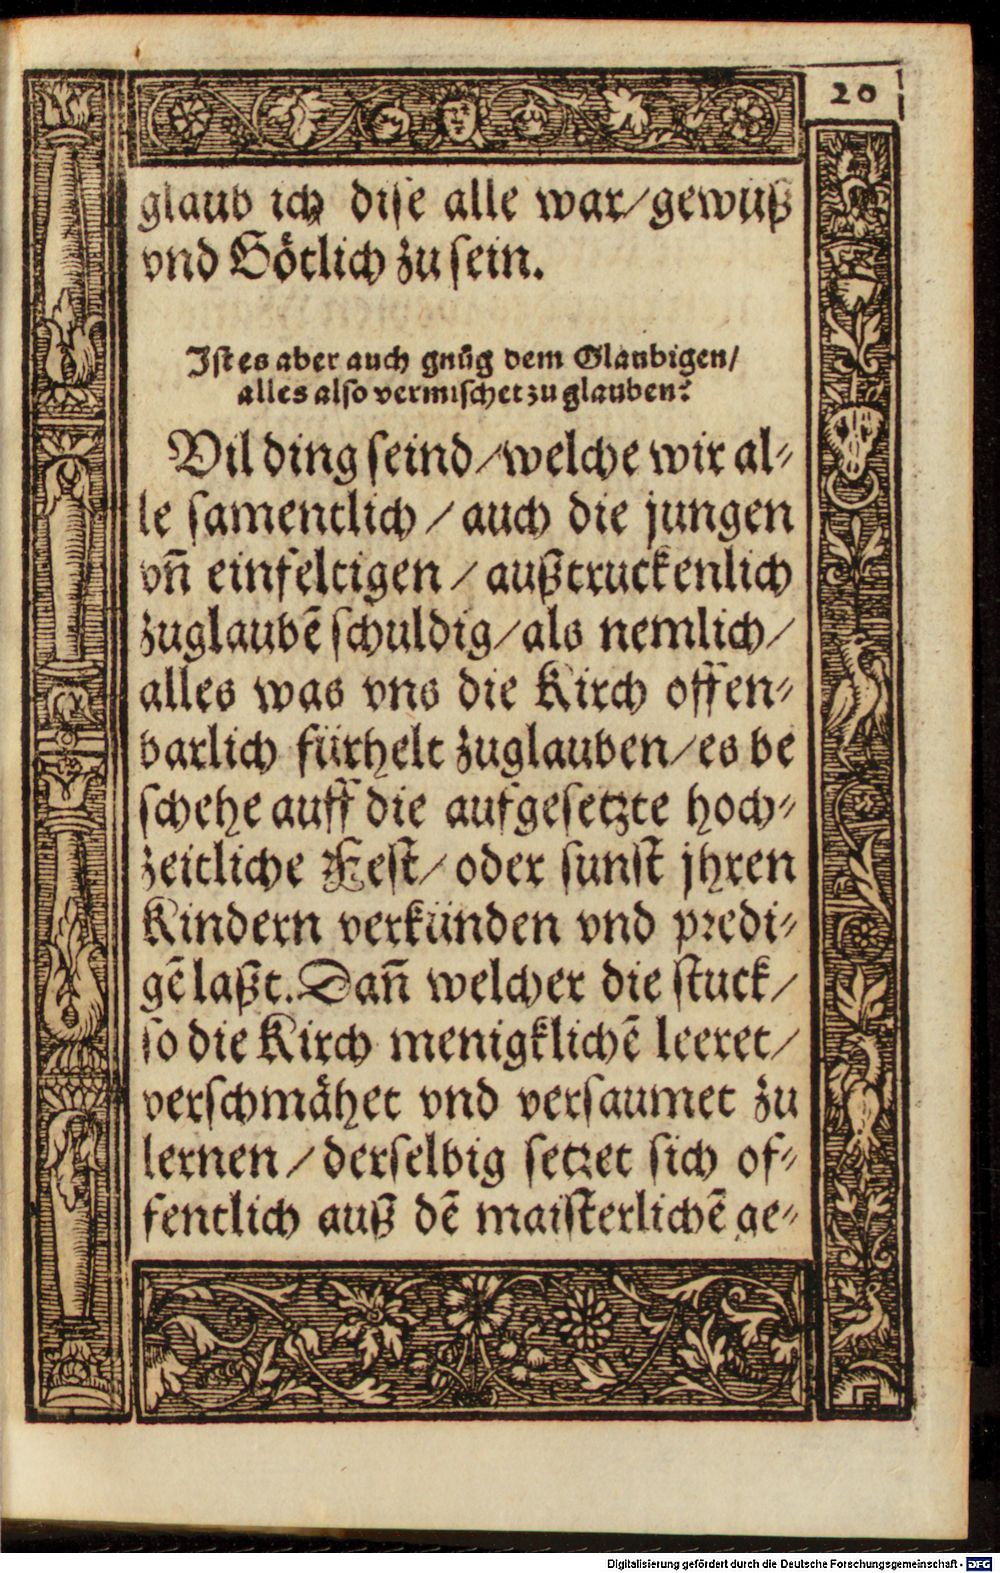 20
glaub ich dise alle war/gewüß
vnd Götlich zu sein.
Ist es aber auch gnůg dem Glaubigen/
alles also vermischet zu glauben?
Vil ding seind/welche wir al⸗
le samentlich/auch die jungen
vñ einfeltigen/außtruckenlich
zuglaubẽ schuldig/als nemlich/
alles was vns die Kirch offen⸗
barlich fürhelt zuglauben/es be
schehe auff die aufgesetzte hoch⸗
zeitliche Fest/oder sunst jhren
Kindern verkünden vnd predi⸗
gẽ laßt. Dañ welcher die stuck/
so die Kirch menigklichẽ leeret/
verschmähet vnd versaumet zu
lernen/derselbig setzet sich of⸗
fentlich auß dẽ maisterlichẽ ge⸗
Digitalisierung gefördert durch die Deutsche Forschungsgemeinschaft - DFG